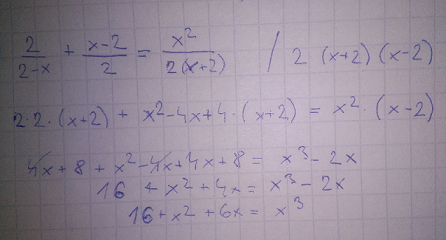 2/(2-x) + (x-2)/2 = x²/(2(x+2)) / 2 (x+2) (x-2)
2·2·(x+2) + x²-4x+4·(x+2) = x²·(x-2)
4x+8 + x²-4x+4x+8 = x³-2x
16 + x²+4x = x³-2x
16+x²+6x = x³